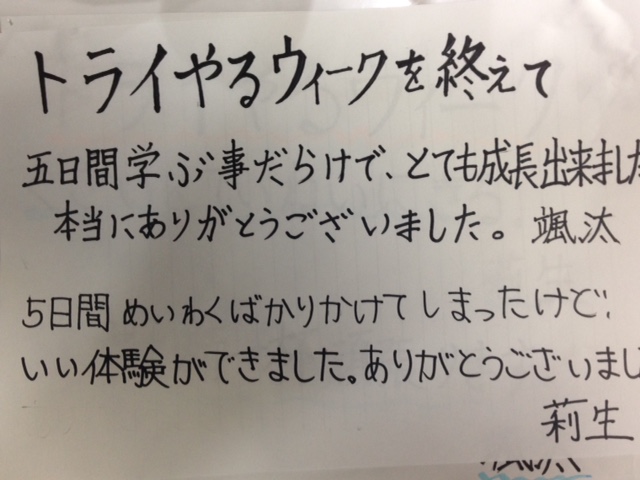 トライやるウィークを終えて
五日間学ぶ事だらけで、とても成長出来ました
本当にありがとうございました。 颯汰
5日間 めいわくばかりかけてしまったけど、
いい体験ができました。ありがとうございまし
莉生